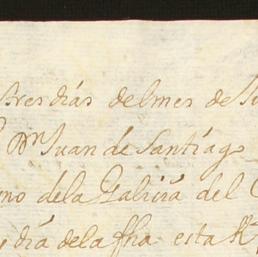 tres dias del mes de
Juan de Santiago
de la Galicia del
dia de la fha esta